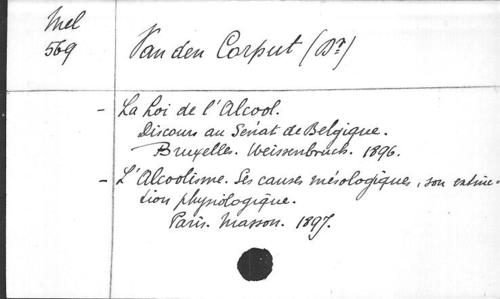 Mel
569
Van den Corput (Dr)
- La Loi de l'Alcool.
Discours au Sénat de Belgique.
Bruxelle. Weissenbruch. 1896.
- L'Alcoolisme. Ses causes mésologiques, son extinc-
tion physiologique.
Paris. Masson. 1897.